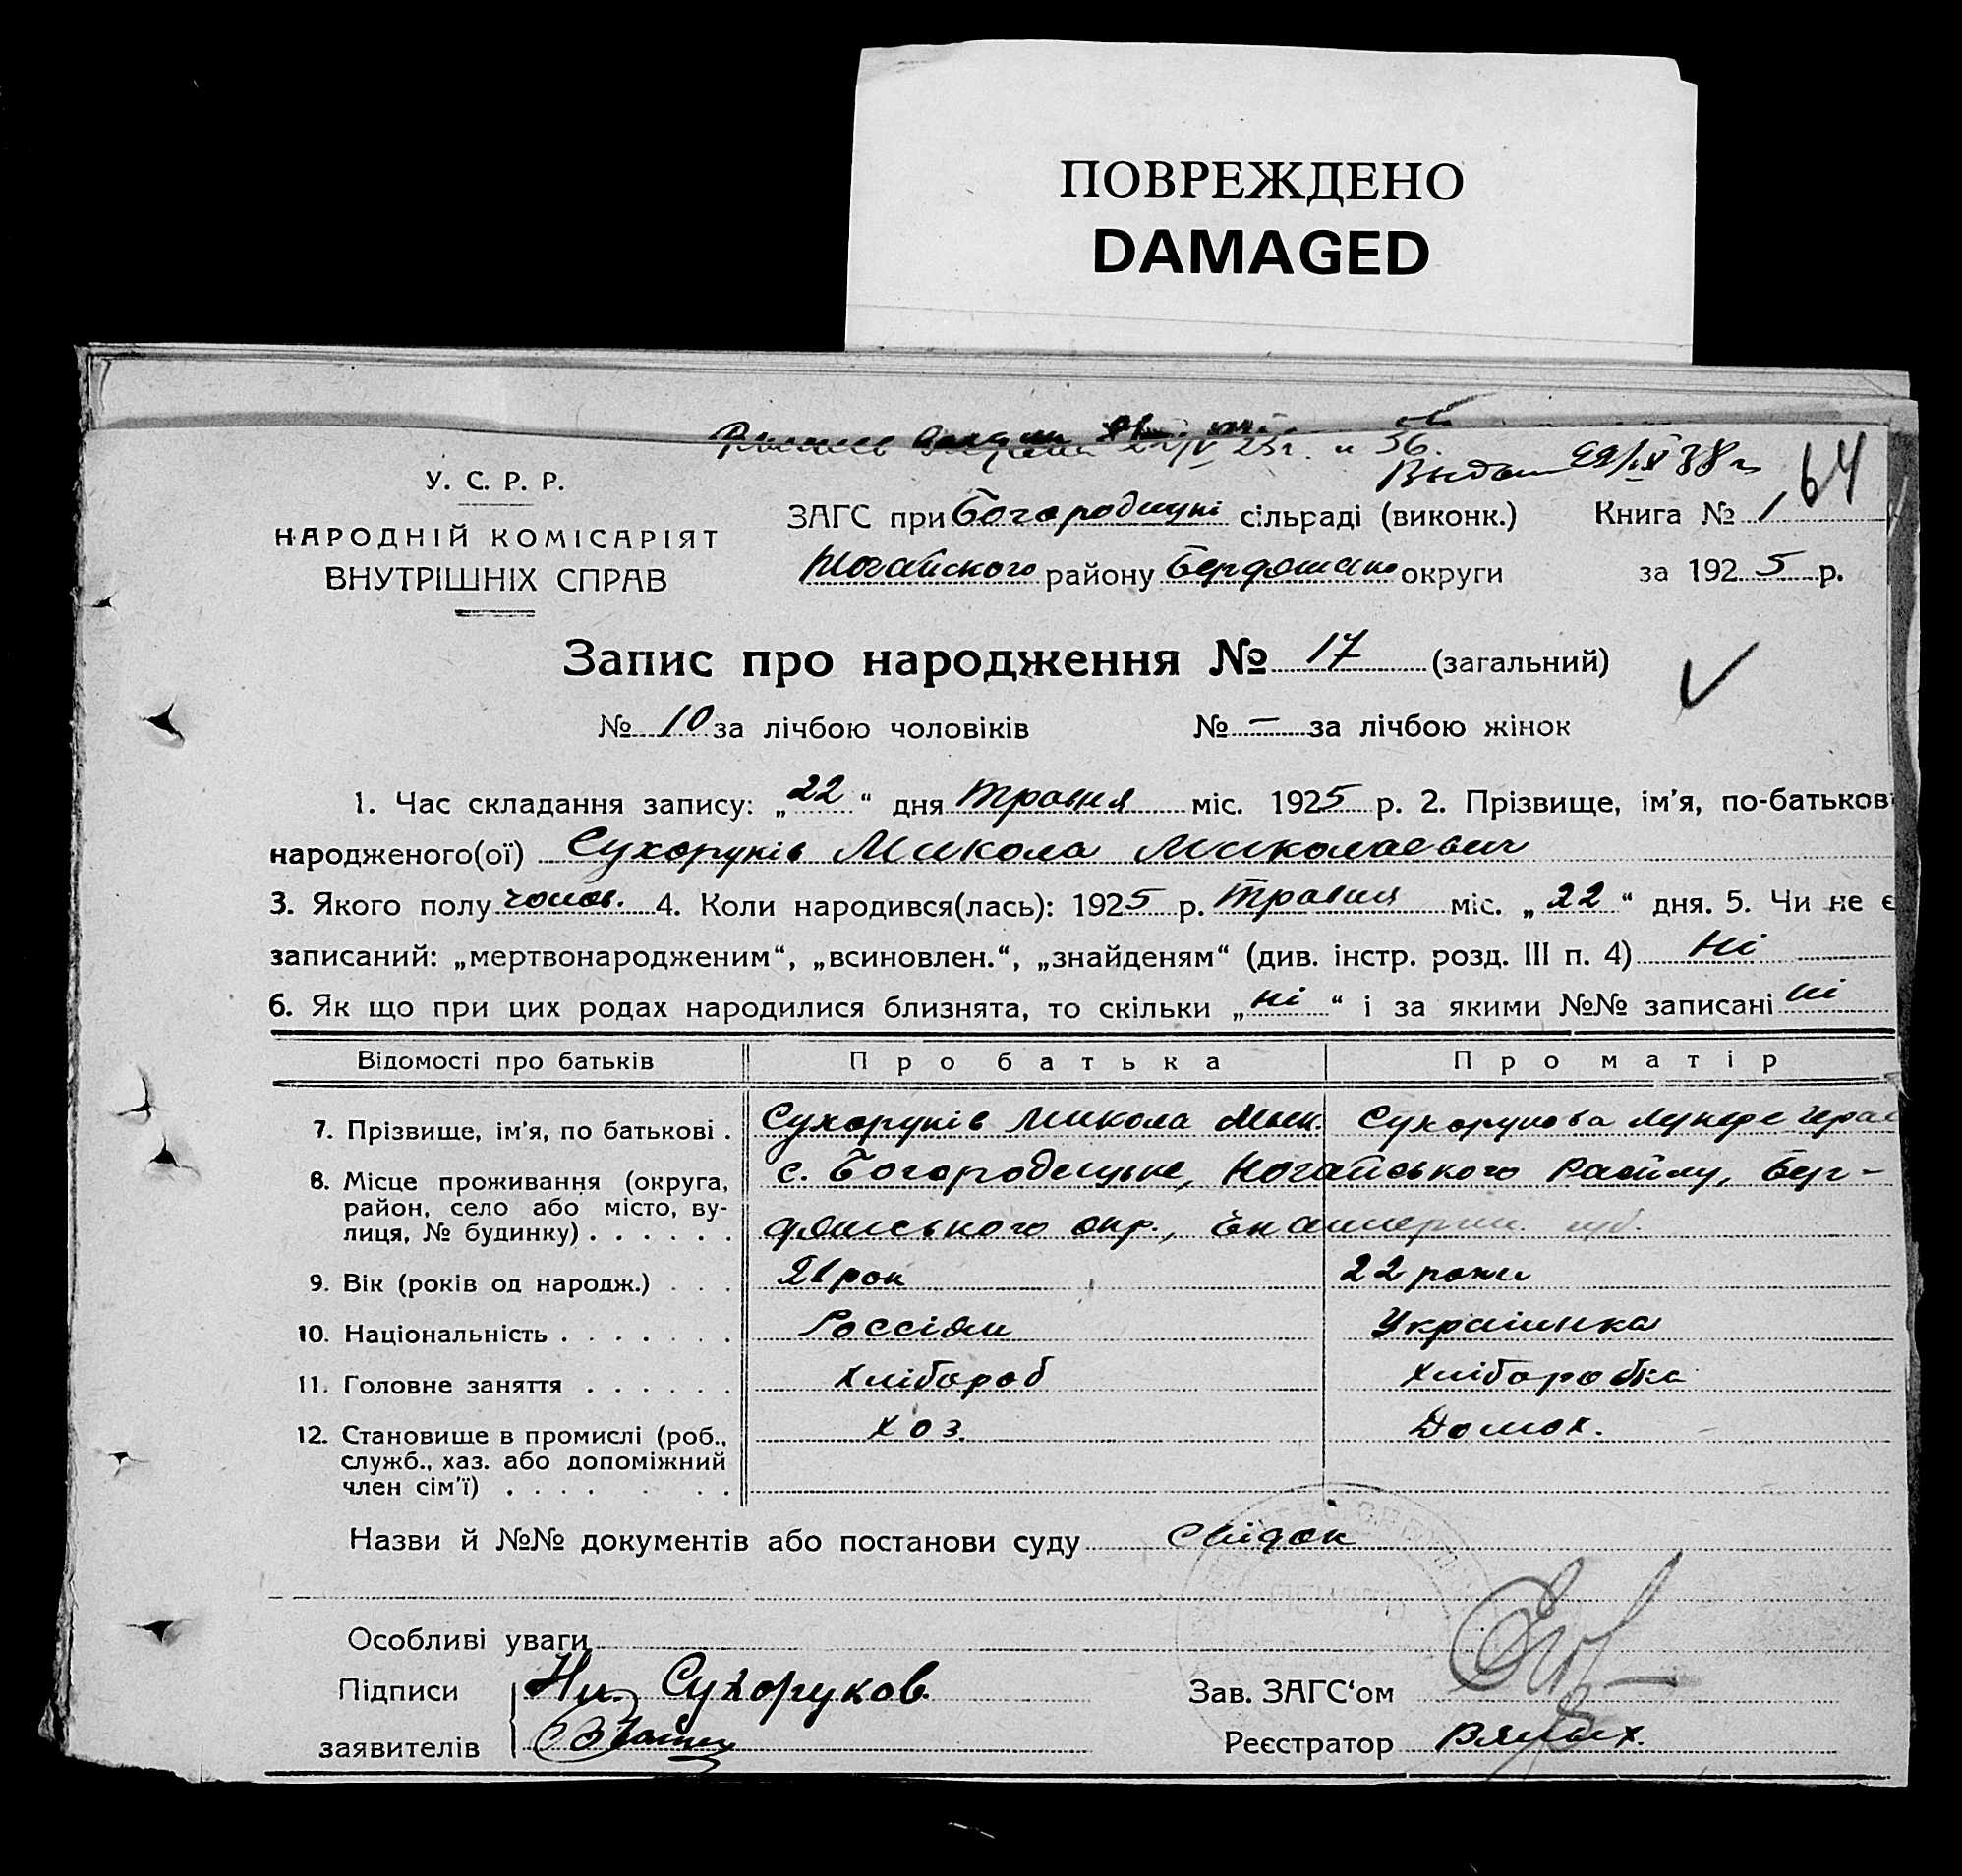 ПОВРЕЖДЕНО
DAMAGED
22/V 25г. и 56.
Выдан 29/IX 38 г.
64
У. С. Р. Р.
НАРОДНІЙ КОМІСАРІЯТ
ВНУТРІШНІХ СПРАВ
ЗАГС при Богородицькі сільраді (виконк.) Книга № 1
Ногайского району Бердянсько округи за 1925 р.
Запис про народження № 17 (загальний)
№ 10 за лічбою чоловіків № — за лічбою жінок
1. Час складання запису: „22“ дня травня міс. 1925 р. 2. Прізвище, ім'я, по-батькові
народженого(ої) Сухоруків Микола Миколаевич
3. Якого полу чолов. 4. Коли народився(лась): 1925 р. Травня міс. „22“ дня. 5. Чи не є
записаний: „мертвонародженим“, „всиновлен.“, „знайденям“ (див. інстр. розд. III п. 4) Ні
6. Як що при цих родах народилися близнята, то скільки „ні“ і за якими №№ записані ні
Відомості про батьків Про батька Про матір
7. Прізвище, ім'я, по батькові . Сухоруків Микола Мик. Сухорукова
8. Місце проживання (округа, с. Богородицьке, Ногайського Району, Бер-
район, село або місто, ву-
лиця, № будинку) . . . . . . дянського окр., Екатерин. губ.
9. Вік (років од народж.) . . . 21 рок 22 роки
10. Національність . . . . . . . Россіян Українка
11. Головне заняття . . . . . . Хлібороб Хліборобка
12. Становище в промислі (роб., Хоз. Домох.
служб., хаз. або допоміжний
член сім'ї) . . . . . . .
Назви й №№ документів або постанови суду Свідок
Особливі уваги
Підписи Ни. Сухоруков. Зав. ЗАГС‘ом
заявителів Реєстратор